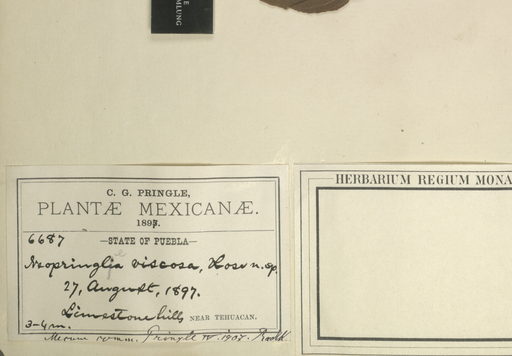 E
MLUNG
C. G. PRINGLE,
PLANTÆ MEXICANÆ.
1897.
6687 —STATE OF PUEBLA—
Neopringlea viscosa, Rose n. sp.
27, August, 1897.
Limestone hills NEAR TEHUACAN.
3-4 m.
comm. Pringle IV. 1907.
HERBARIUM REGIUM MONA